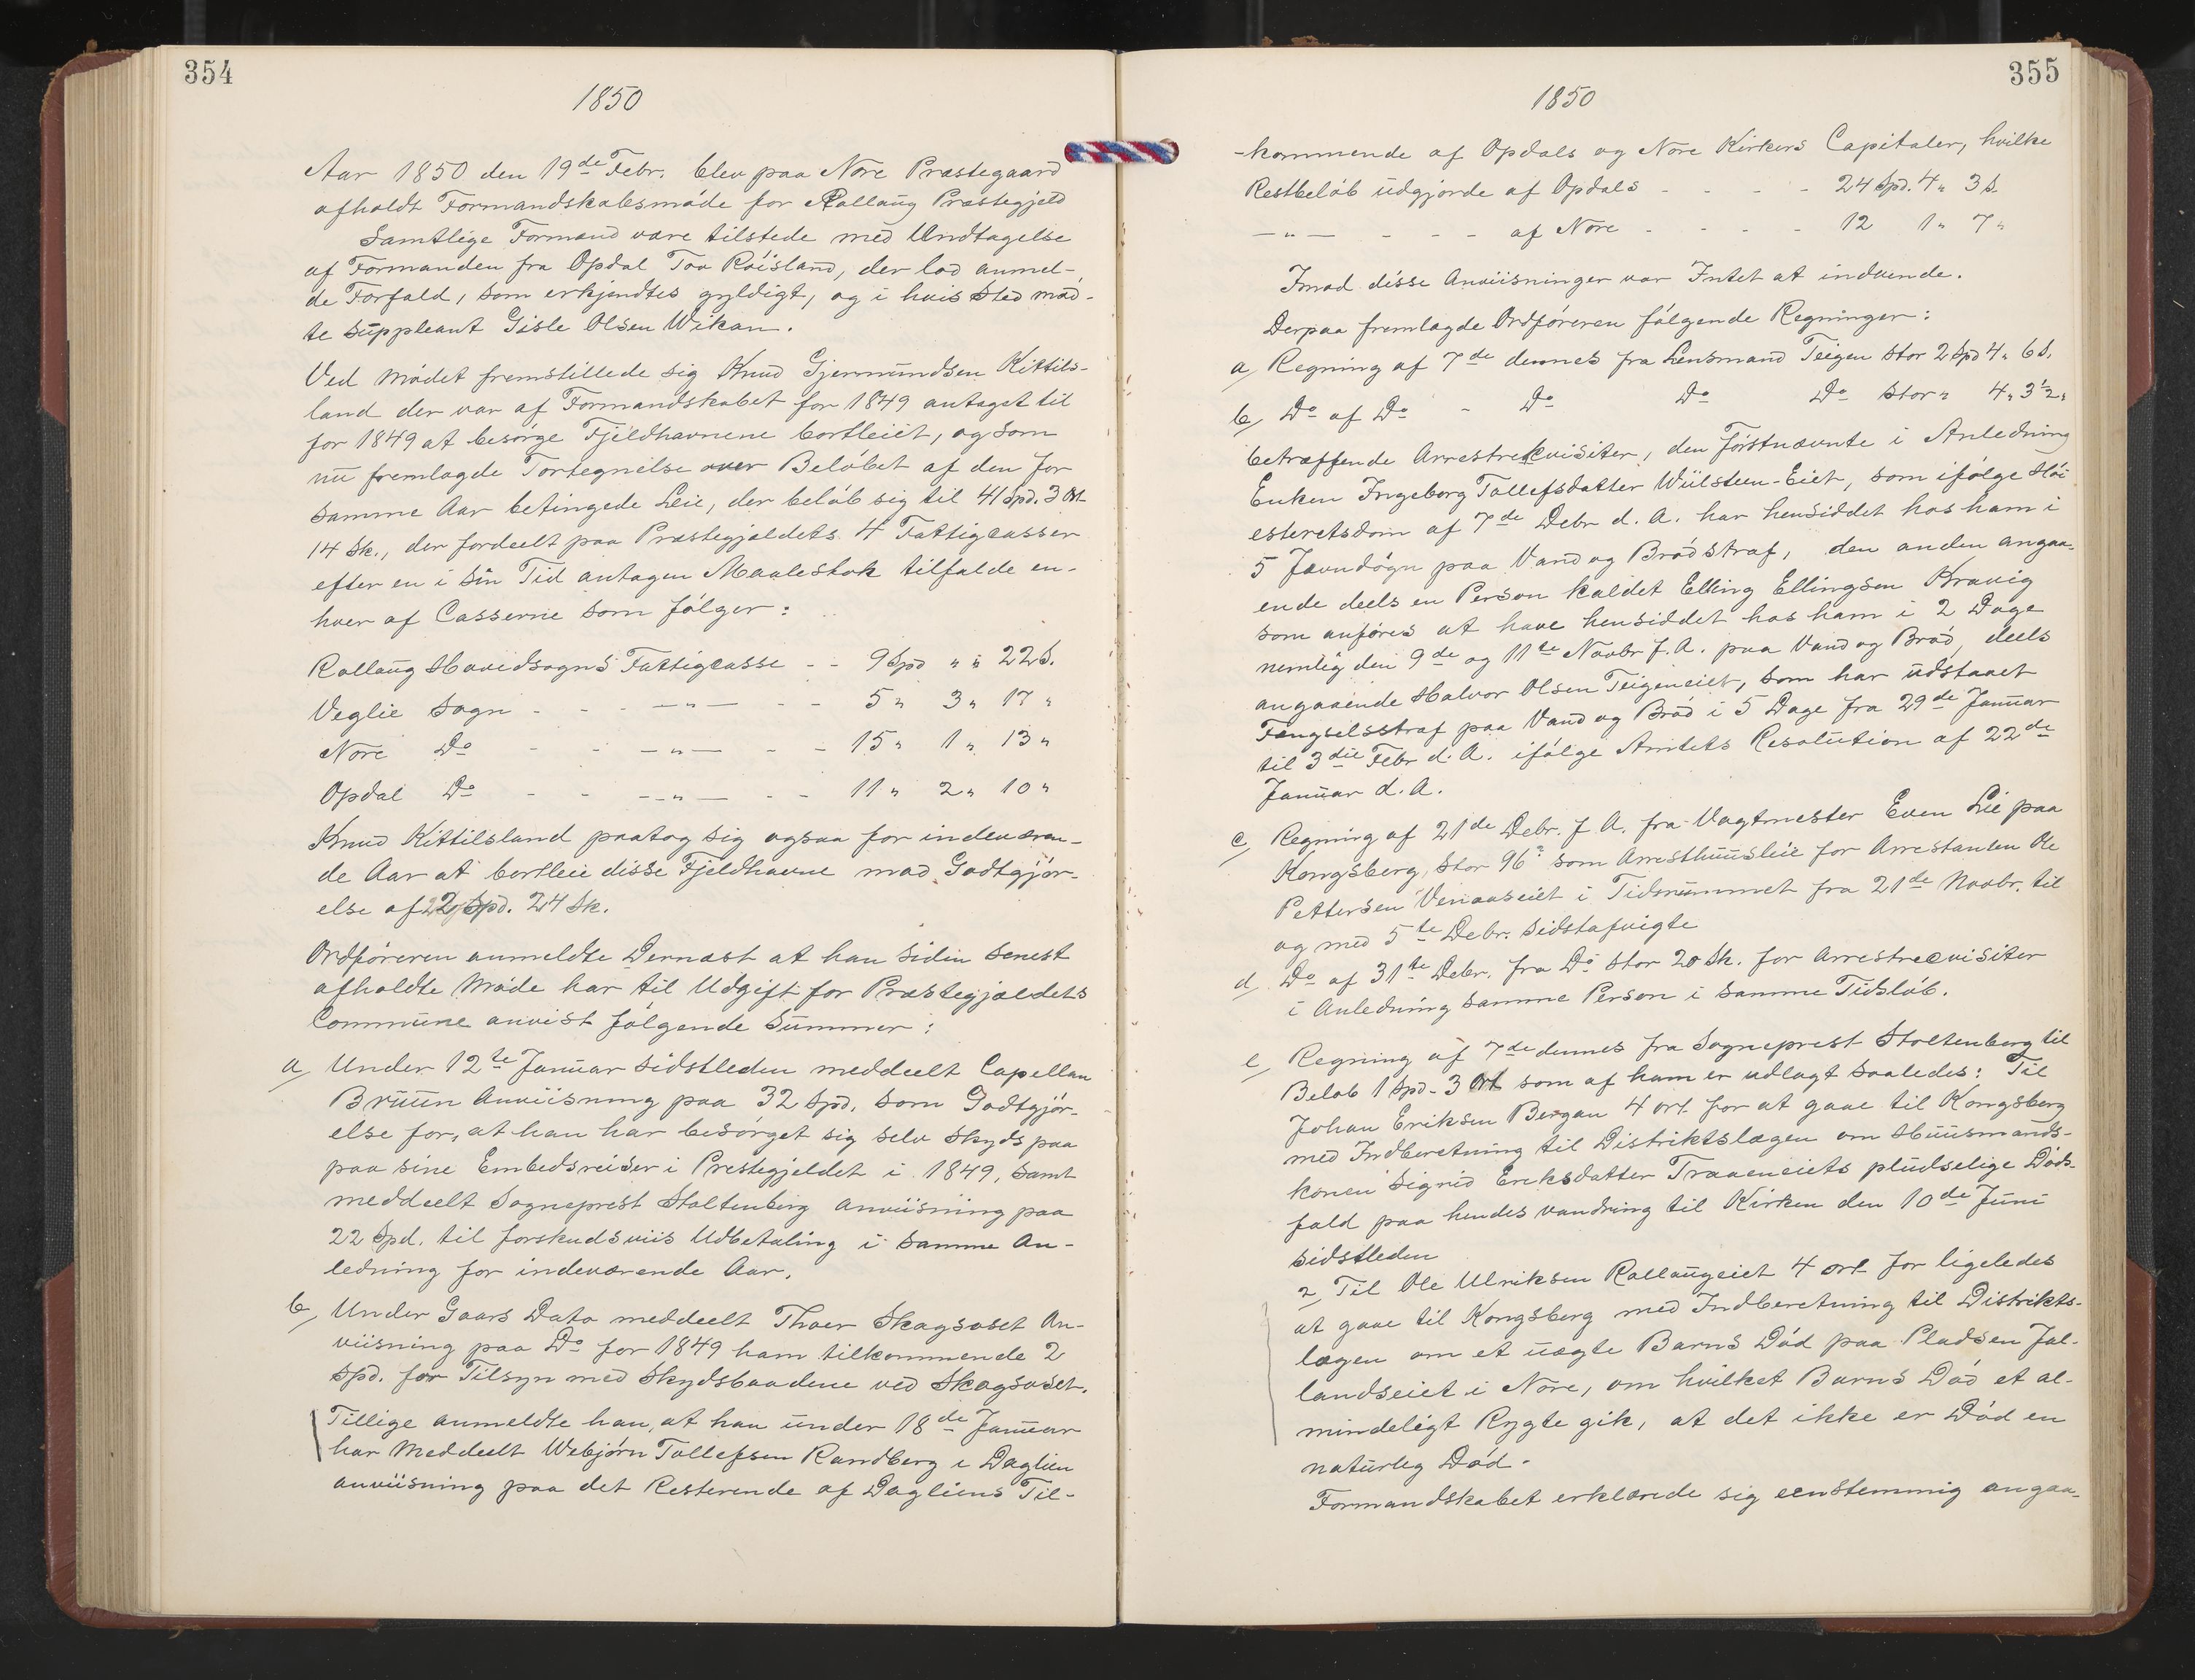 354
1850
Aar 1850 den 19de Febr. blev paa Nore Præstegaard
afholdt Formandskabsmøde for Rollaug Præstegjeld
Samtlige Formænd vare tilstede med Undtagelse
af Formanden fra Opdal Tov Röisland, der lod anmel-
de Forfald, som erkjendtes gyldigt, og i hvis Sted mød-
te Suppleant Gisle Olsen Wikan.
Ved Mødet fremstillede sig Knud Gjermundsen Kittils-
land der var af Formandskabet for 1849 antaget til
for 1849 at besørge Fjeldhavnene bortleiet, og som
nu fremlagde Fortegnelse over Beløbet af den for
samme Aar betingede Leie, der beløb sig til 41 Spd. 3 Ort
14 Sk., der fordeelt paa Præstegjældets 4 Fattigcasser
efter en i sin Tid antagen Maalestok tilfaldt en-
hver af Casserne som følger:
Rollaug Hovedsogns Fattigcasse - - 9 Spd " " 22 S.
Veglie Sogn - - - —"— - - 5 " 3 " 17 "
Nore Do - - —"— - - 15 " 1 " 13 "
Opdal Do - - —"— - - 11 " 2 " 10 "
Knud Kittilsland paatog sig ogsaa for indeværen-
de Aar at bortleie disse Fjeldhavne mod Godtgjör-
else af 2 Spd. 24 Sk.
Ordføreren anmeldte Dernæst at han siden senest
afholdte Møde har til Udgift for Præstegjældets
Commune anvist følgende Summer:
a/ Under 12te Januar sidstleden meddeelt Capellan
Bruun Anviisning paa 32 Spd. som Godtgjør-
else for, at han har besørget sig selv Skyds paa
paa sine Embedsreiser i Prestegjeldet i 1849, samt
meddeelt Sogneprest Stoltenberg Anviisning paa
22 Spd. til forskudsviis Udbetaling i samme An-
ledning for indeværende Aar.
b/ Under Gaars Dato meddeelt Thoer Skagsoset An-
viisning paa Do for 1849 ham tilkommende 2
Spd. for Tilsyn med Skydsbaadene ved Skogsoset.
Tillige anmeldte han, at han under 18de Januar
har Meddeelt Webjörn Tollefsen Randberg i Daglien
anviisning paa det Resterende af Dagliens Til-
355
1850
-kommende af Opdals og Nore Kirkers Capitaler, hvilke
Restbeløb udgjorde af Opdals - - - - 24 Spd. 4 " 3 S.
—"— - - - af Nore - - - - 12 1 " 7 "
Imod disse Anviisninger var Intet at indvende.
Derpaa fremlagde Ordføreren følgende Regninger:
a/ Regning af 7de dennes fra Lensmand Teigen stor 2 Spd 4 " 6 S.
b/ Do af Do - Do Do Do stor " 4 " 3 1/2 "
betræffende Arrestrekvisiter, den førstnævnte i Anledning
Enken Ingeborg Tollefsdatter Wülsteen-Eiet, som ifølge Høi-
esteretsdom af 7de Debr d. A. har hensiddet hos ham i
5 Jevndøgn paa Vand og Brødstraf, den anden angaa-
ende deels en Person kaldet Elling Ellingsen Kravig
som anføres at have hensiddet hos ham i 2 Dage
nemlig den 9de og 11te Novbr f. A. paa Vand og Brød, deels
angaaende Halvor Olsen Teigeneiet, som har udstaaet
Fængselsstraf paa Vand og Brød i 5 Dage fra 29de Januar
til 3die Febr d. A. ifølge Amtets Resolution af 22de
Januar d. A.
c/ Regning af 21de Debr. f. A. fra Vagtmester Even Lie paa
Kongsberg, stor 96 s som Arresthuusleie for Arrestanten Ole
Pettersen Venaaseiet i Tidsrummet fra 21de Novbr. til
og med 5te Debr. sidstafvigte
d/ Do af 31te Debr. fra Do stor 20 Sk. for Arrestrecvisiter
i Anledning samme Person i samme Tidsløb.
e/ Regning af 7de dennes fra Sogneprest Stoltenberg til
Beløb 1 Spd. 3 Ort som af ham er udlagt saaledes: Til
Johan Eriksen Bergan 4 ort for at gaae til Kongsberg
med Indberetning til Distriktslægen om Huusmands-
konen Sigrid Eriksdatter Traaeneiets pludselige Døds-
fald paa hendes vandring til Kirken den 10de Juni
sidstleden
2/ Til Ole Ulriksen Rollaugeiet 4 ort for ligeledes
at gaae til Kongsberg med Indberetning til Distrikts-
lægen om et uægte Barns Død paa Pladsen Jal-
landseiet i Nore, om hvilket Barns Død et al-
mindeligt Rygte gik, at det ikke er Død en
naturlig Død.
Formandskabet erklærede sig eenstemmig angaa-